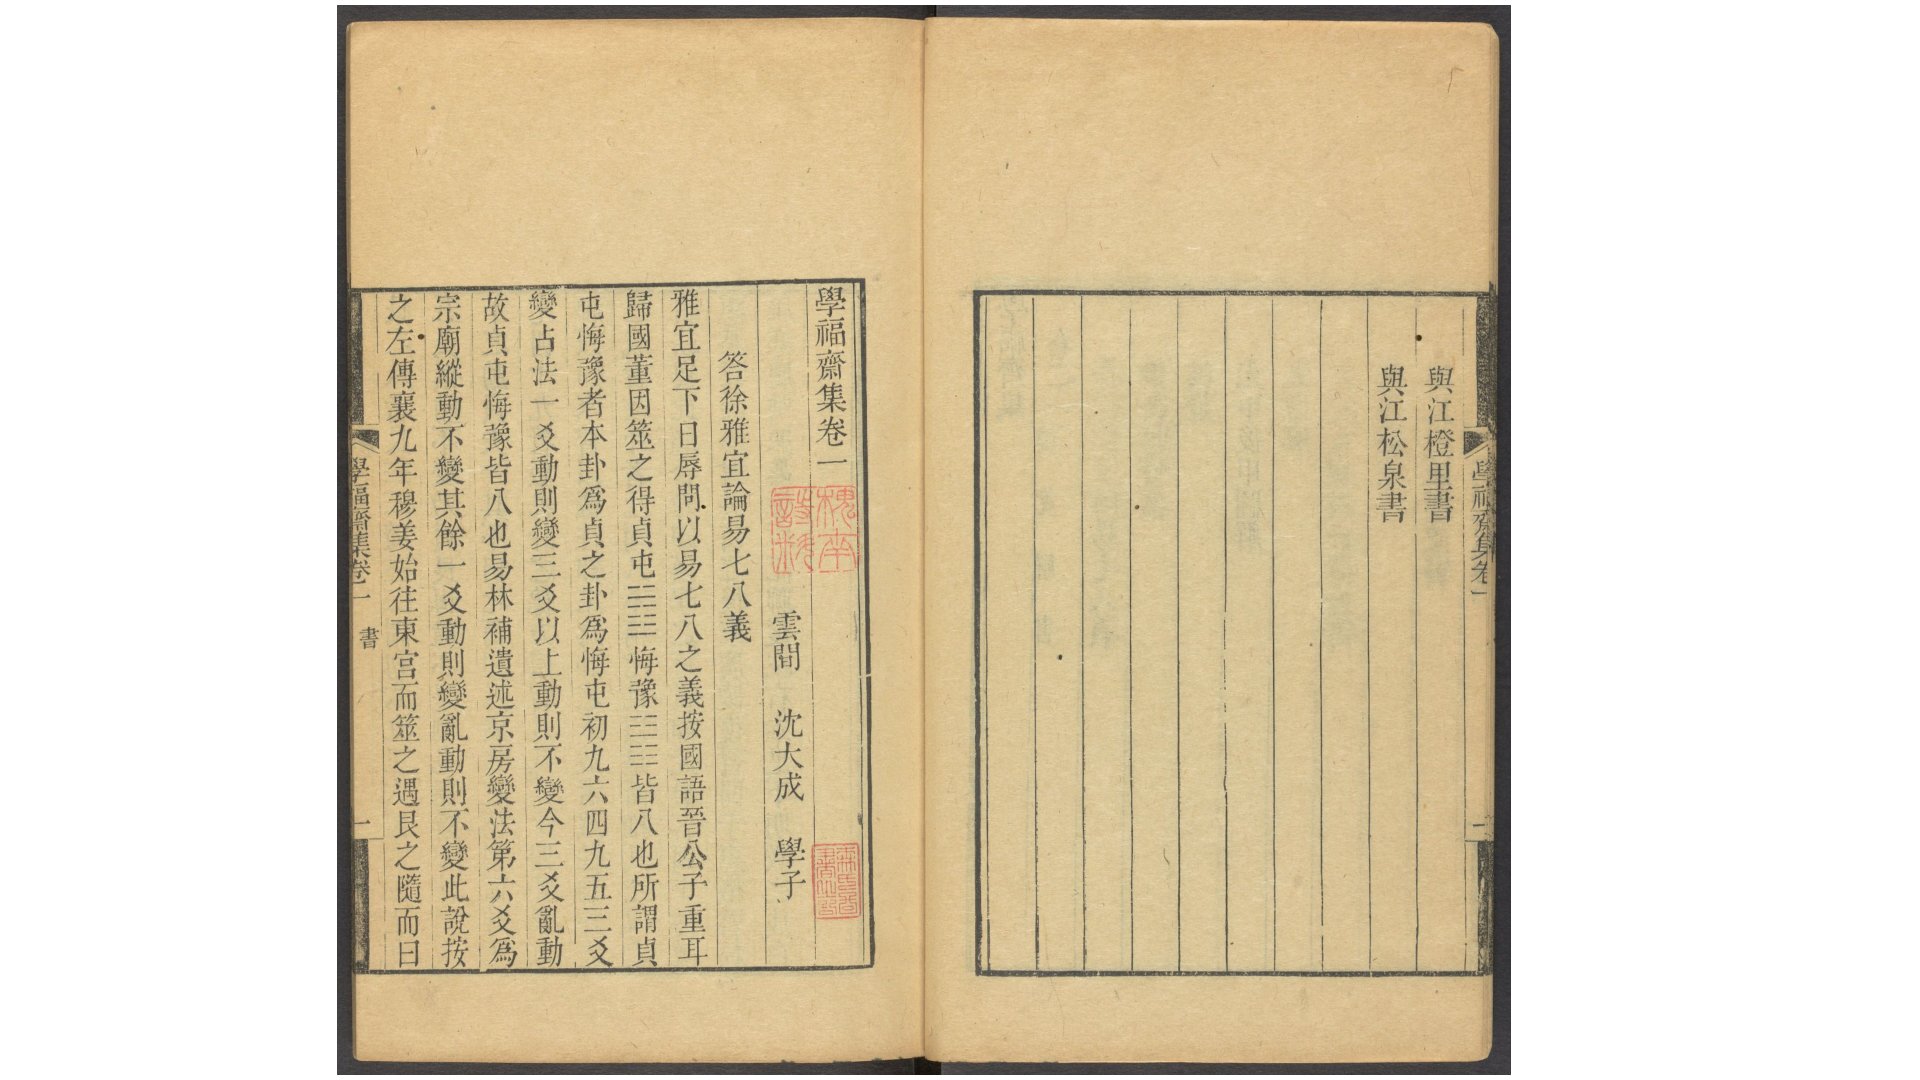 與江橙里書
與江松泉書
學福齋集卷一
學福齋集卷一
雲間　沈大成　學子
答徐雅宜論易七八義
雅宜足下日辱問以易七八之義按國語晉公子重耳
歸國董因筮之得貞屯☳☵悔豫☷☳皆八也所謂貞
屯悔豫者本卦爲貞之卦爲悔屯初九六四九五三爻
變占法一爻動則變三爻以上動則不變今三爻亂動
故貞屯悔豫皆八也易林補遺述京房變法第六爻爲
宗廟縱動不變其餘一爻動則變亂動則不變此說按
之左傳襄九年穆姜始往東宮而筮之遇艮之隨而曰
學福齋集卷一　書　一